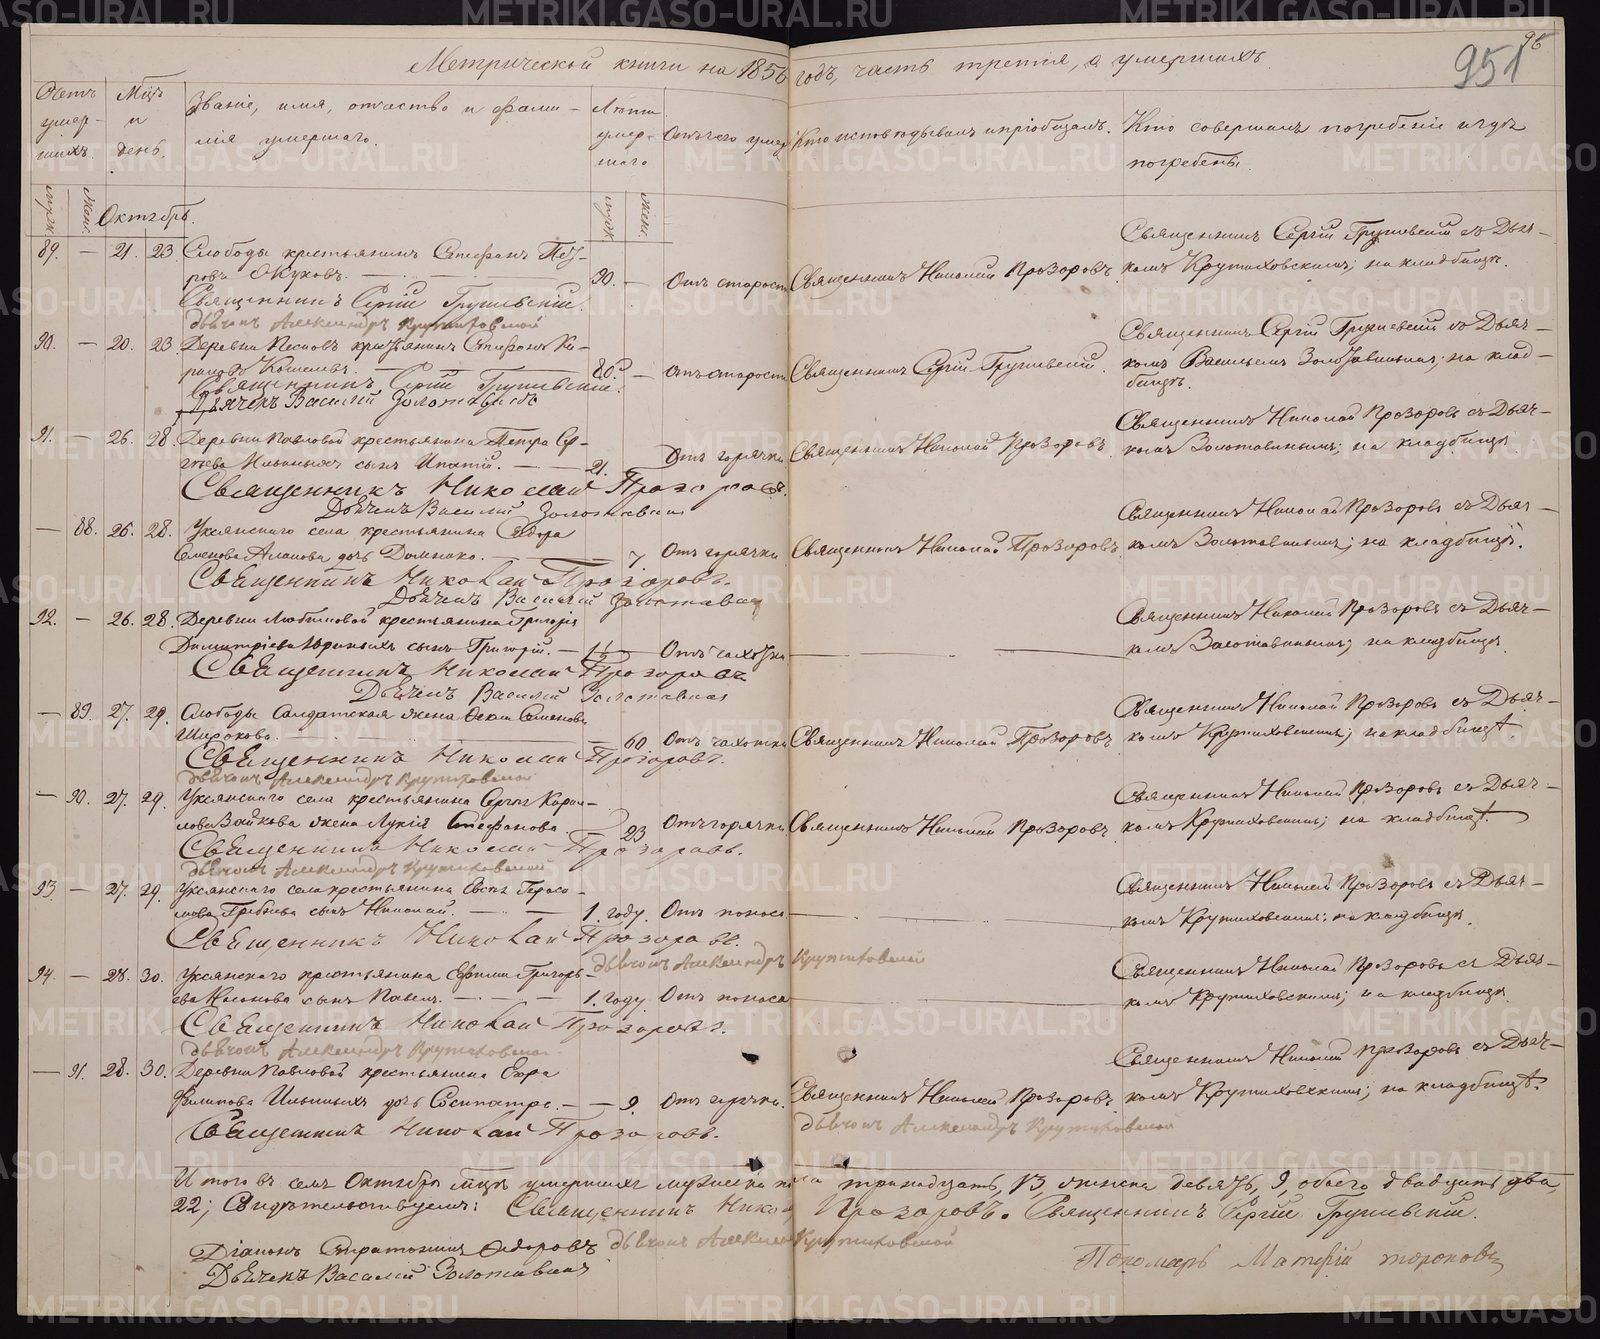 95
951
Метрической книги на 1856 годъ, часть третія, о умершихъ.
Счетъ умер-шихъ.
Мѣсяцъ и день.
Званіе, имя, отчество и фами-
лія умершаго.
Лѣта умер-шаго
Отъ чего умеръ
Кто исповѣдывалъ и пріобщалъ.
Кто совершалъ погребеніе и гдѣ
погребены.
муж.
жен.
Октябрь.
муж.
жен.
Священникъ Сергій Грушевскій съ Дьяч-
89. — 21. 23. Слободы крестьянинъ Стефанъ Пет-
ровъ Окуловъ. — 90. — Отъ старости Священникъ Николай Прозоровъ. комъ Крутиховскимъ; на кладбищѣ.
Священникъ Сергій Грушевскій
дьячокъ Александръ Крутиховской
Священникъ Сергій Грушевскій съ Дьяч-
90. — 20. 23. Деревни крестьянинъ Стефанъ Ки-
80. — Отъ старости Священникъ Сергій Грушевскій. комъ Василіемъ Золотавинымъ; на клад-
бищѣ.
Священникъ Сергій Грушевскій.
Дьячекъ Василій Золотавинъ
Священникъ Николай Прозоровъ съ Дьяч-
91. — 26. 28. Деревни Павловой крестьянина Петра Сер-
гѣева Ильиныхъ сынъ Ипатій. — 21. Отъ горячки Священникъ Николай Прозоровъ. комъ Золотавинымъ; на кладбищѣ
Священникъ Николай Прозоровъ.
Дьячекъ Василій Золотавинъ
Священникъ Николай Прозоровъ съ Дьяч-
— 88. 26. 28. Уксянскаго села крестьянина Ѳедора
Семенова дочь Домника. — 7. Отъ горячки Священникъ Николай Прозоровъ. комъ Золотавинымъ; на кладбищѣ.
Священникъ Николай Прозоровъ.
Дьячекъ Василій Золотавинъ
Священникъ Николай Прозоровъ съ Дьяч-
92. — 26. 28. Деревни Любимовой крестьянина Григорія
Димитріева сынъ Григорій. — 1½ Отъ чахотки — комъ Золотавинымъ; на кладбищѣ
Священникъ Николай Прозоровъ
Дьячекъ Василій Золотавинъ
Священникъ Николай Прозоровъ съ Дьяч-
— 89. 27. 29. Слободы Солдатская жена Семенова
Широкова. — 60. Отъ чахотки Священникъ Николай Прозоровъ комъ Крутиховскимъ; на кладбищѣ.
Священникъ Николай Прозоровъ.
дьячокъ Александръ Крутиховской
Священникъ Николай Прозоровъ съ Дьяч-
— 90. 27. 29. Уксянскаго села крестьянина Сергѣя Кирил-
лова Зайкова жена Лукія Стефанова. 23 Отъ горячки Священникъ Николай Прозоровъ комъ Крутиховскимъ; на кладбищѣ.
Священникъ Николай Прозоровъ.
дьячокъ Александръ Крутиховской
Священникъ Николай Прозоровъ съ Дьяч-
93. — 27. 29. Уксянскаго села крестьянина Гераси-
мова сынъ Николай. — 1. году. Отъ поноса — комъ Крутиховскимъ; на кладбищѣ.
Священникъ Николай Прозоровъ.
дьячокъ Александръ Крутиховской
Священникъ Николай Прозоровъ съ Дьяч-
94. — 28. 30. Уксянскаго крестьянина Григорь-
ева сынъ Павелъ. — 1. году. Отъ поноса — комъ Крутиховскимъ; на кладбищѣ
Священникъ Николай Прозоровъ.
дьячокъ Александръ Крутиховской
Священникъ Николай Прозоровъ съ Дьяч-
— 91. 28. 30. Деревни Павловой крестьянина
Филипова Ильиныхъ дочь Сосипатра. — 9. Отъ горячки. Священникъ Николай Прозоровъ. комъ Крутиховскимъ; на кладбищѣ.
Священникъ Николай Прозоровъ. дьячокъ Александръ Крутиховской
Итого въ семъ Октябрѣ мѣсяцѣ умершихъ мужеска пола тринадцать, 13, женска девять, 9, обоего двадцать два,
22; Свидѣтельствуемъ: Священникъ Николай Прозоровъ. Священникъ Сергій Грушевскій.
Діаконъ Стратоникъ Ѳедоровъ дьячокъ Александръ Крутиховской
Дьячекъ Василій Золотавинъ
Пономарь Матѳій Тороповъ
METRIKI.GASO-URAL.RU